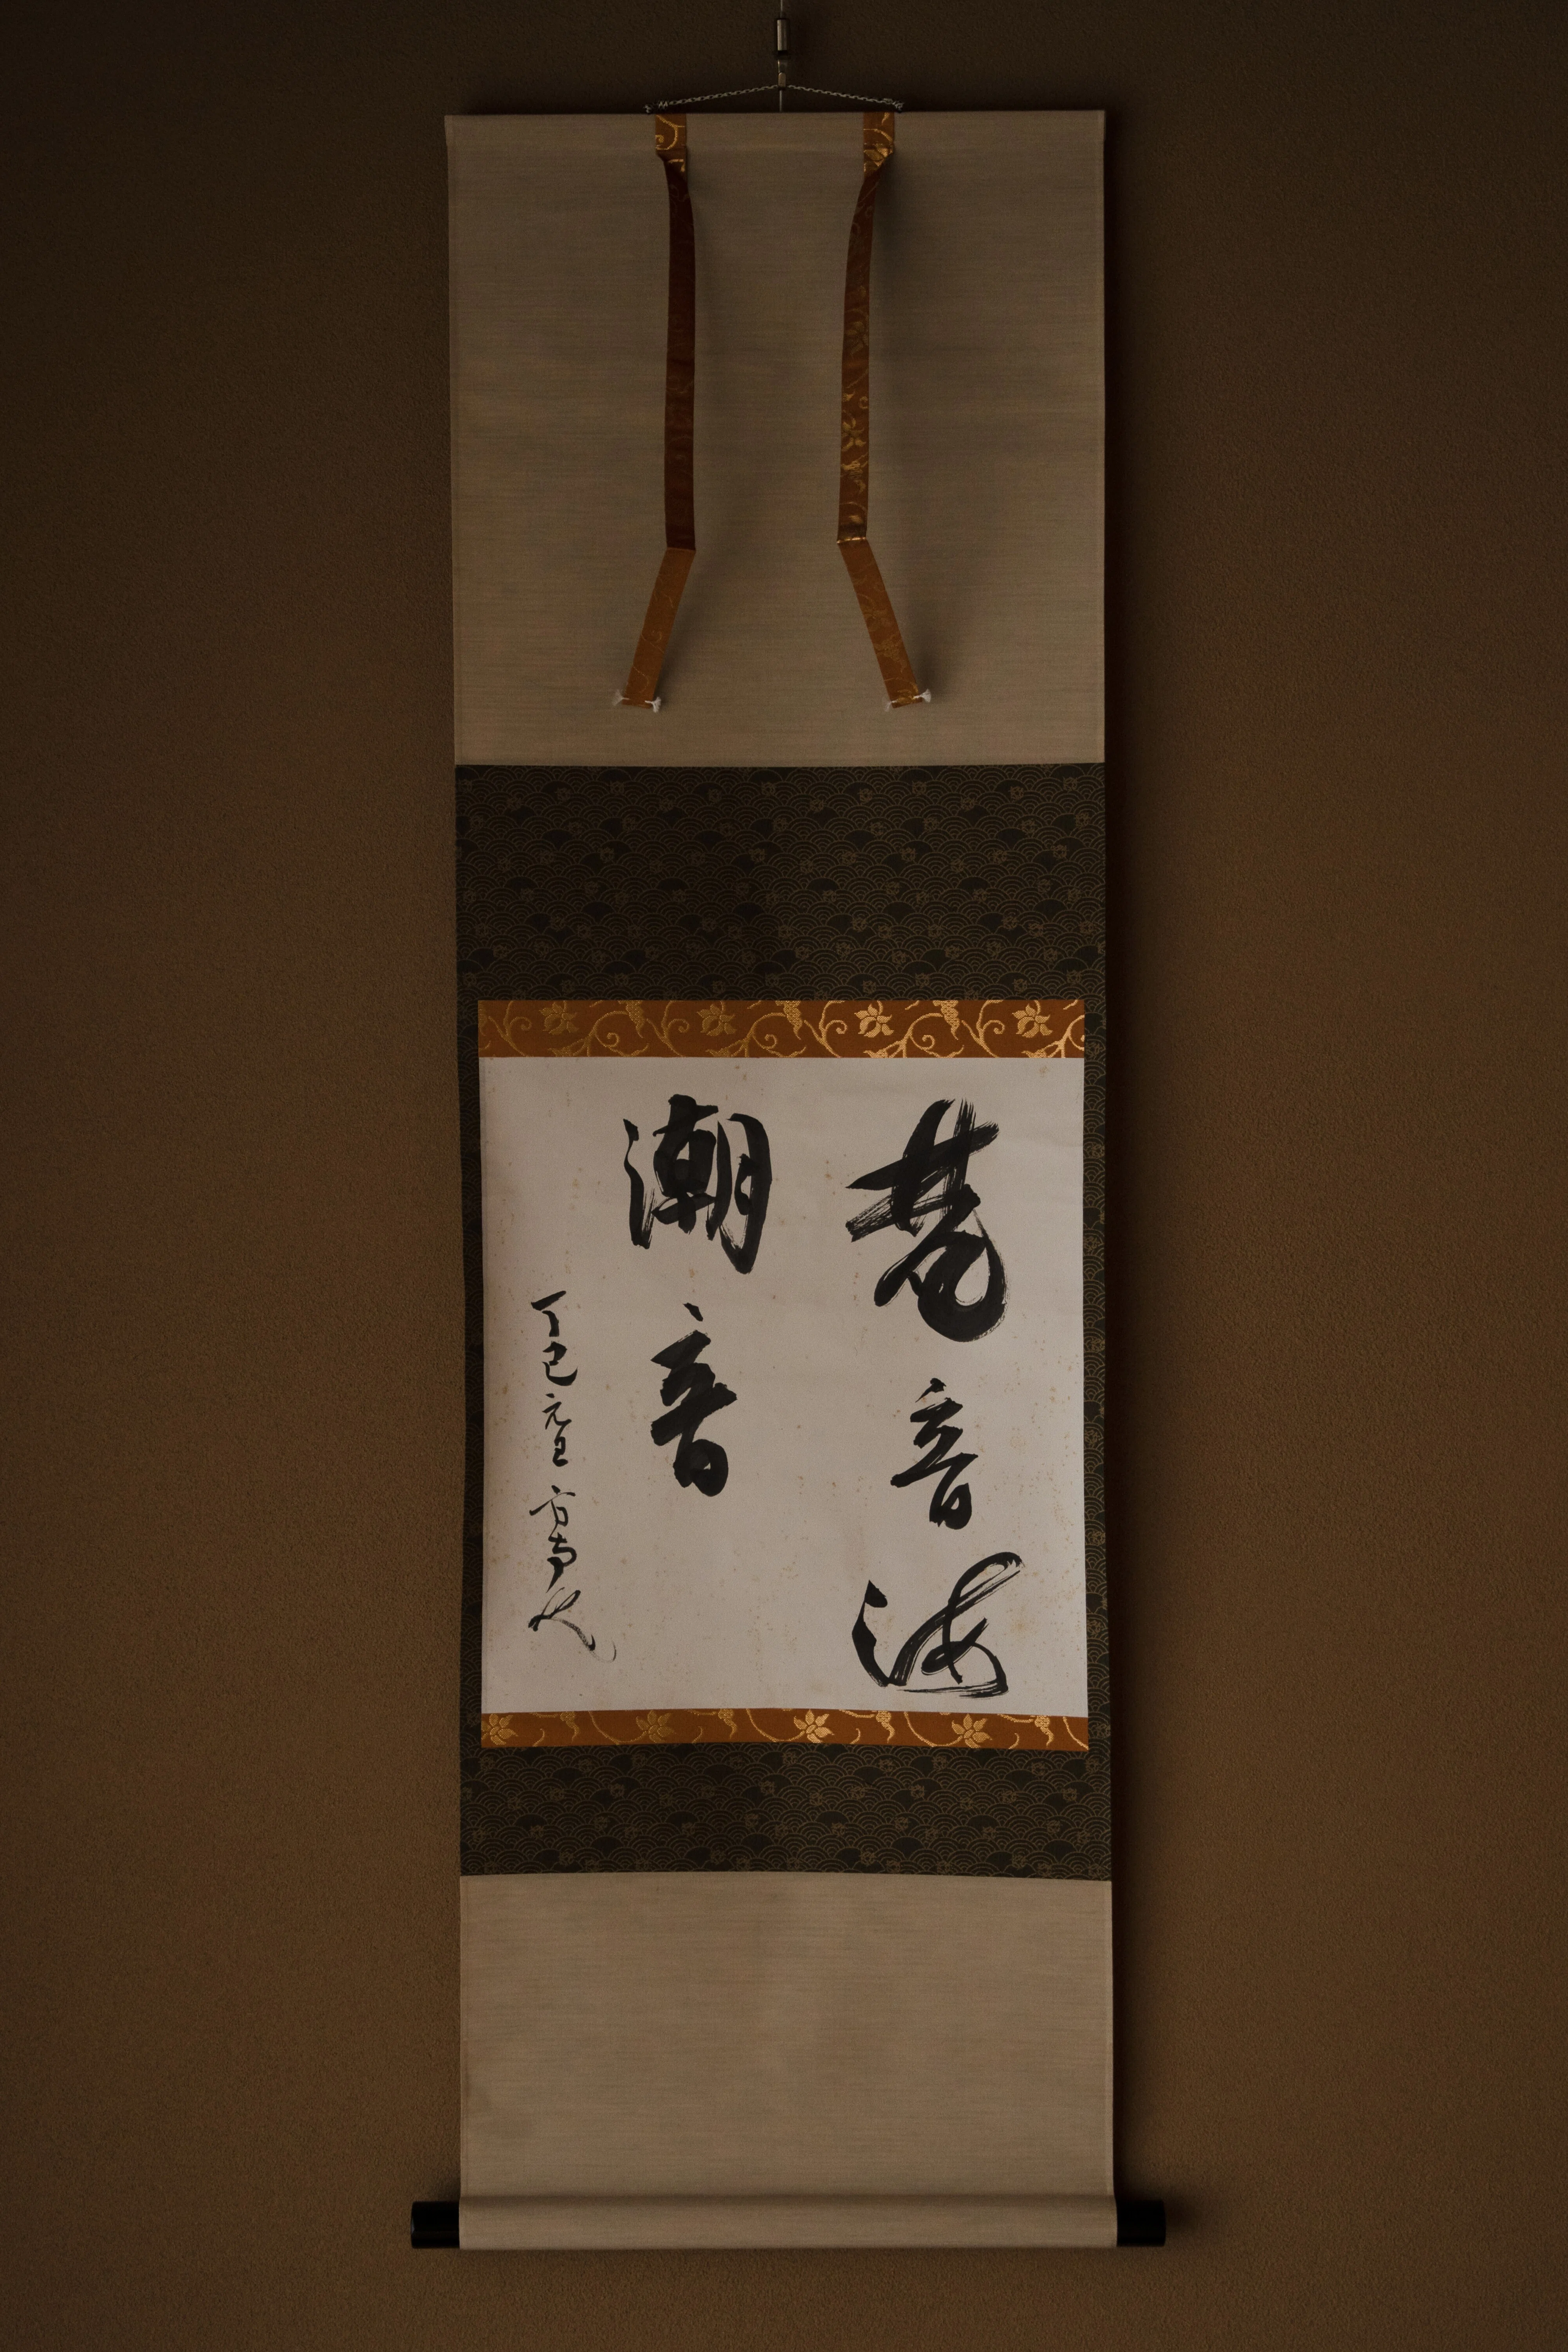 梵音海
潮音
丁巳元旦